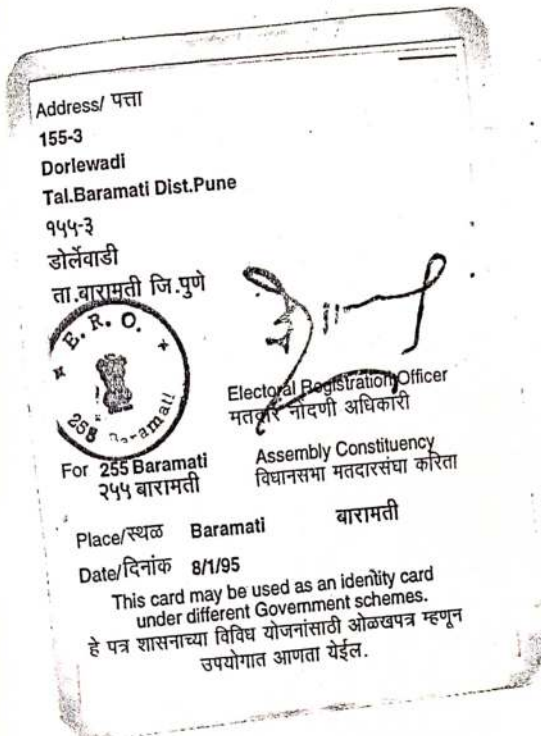 Address/ पत्ता
155-3
Dorlewadi
Tal.Baramati Dist.Pune
१५५-३
डोर्लेवाडी
ता.बारामती जि.पुणे
E. R. O.
258 Baramati
Electoral Registration Officer
मतदार नोंदणी अधिकारी
For 255 Baramati Assembly Constituency
२५५ बारामती विधानसभा मतदारसंघा करिता
Place/स्थळ Baramati बारामती
Date/दिनांक 8/1/95
This card may be used as an identity card
under different Government schemes.
हे पत्र शासनाच्या विविध योजनांसाठी ओळखपत्र म्हणून
उपयोगात आणता येईल.